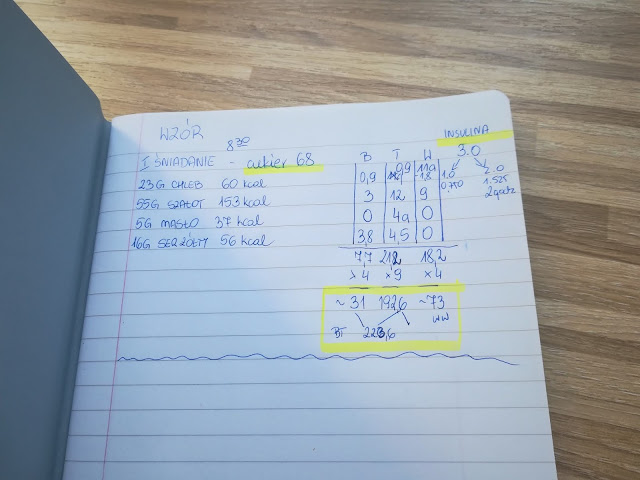 WZÓR
8:30
INSULINA
I ŚNIADANIE - cukier 68
B T W
3.0
23G CHLEB 60 kcal 0,9 0,9 1,8 1.0 2.0
55G SZAŁOT 153 kcal 3 12 9 1.525
5G MASŁO 37 kcal 0 4 0
16G SER ŻÓŁTY 56 kcal 3,8 4,5 0
7,7 21,2 18,2
×4 ×9 ×4
~31 192,6 ~73
BT 223,6 WW